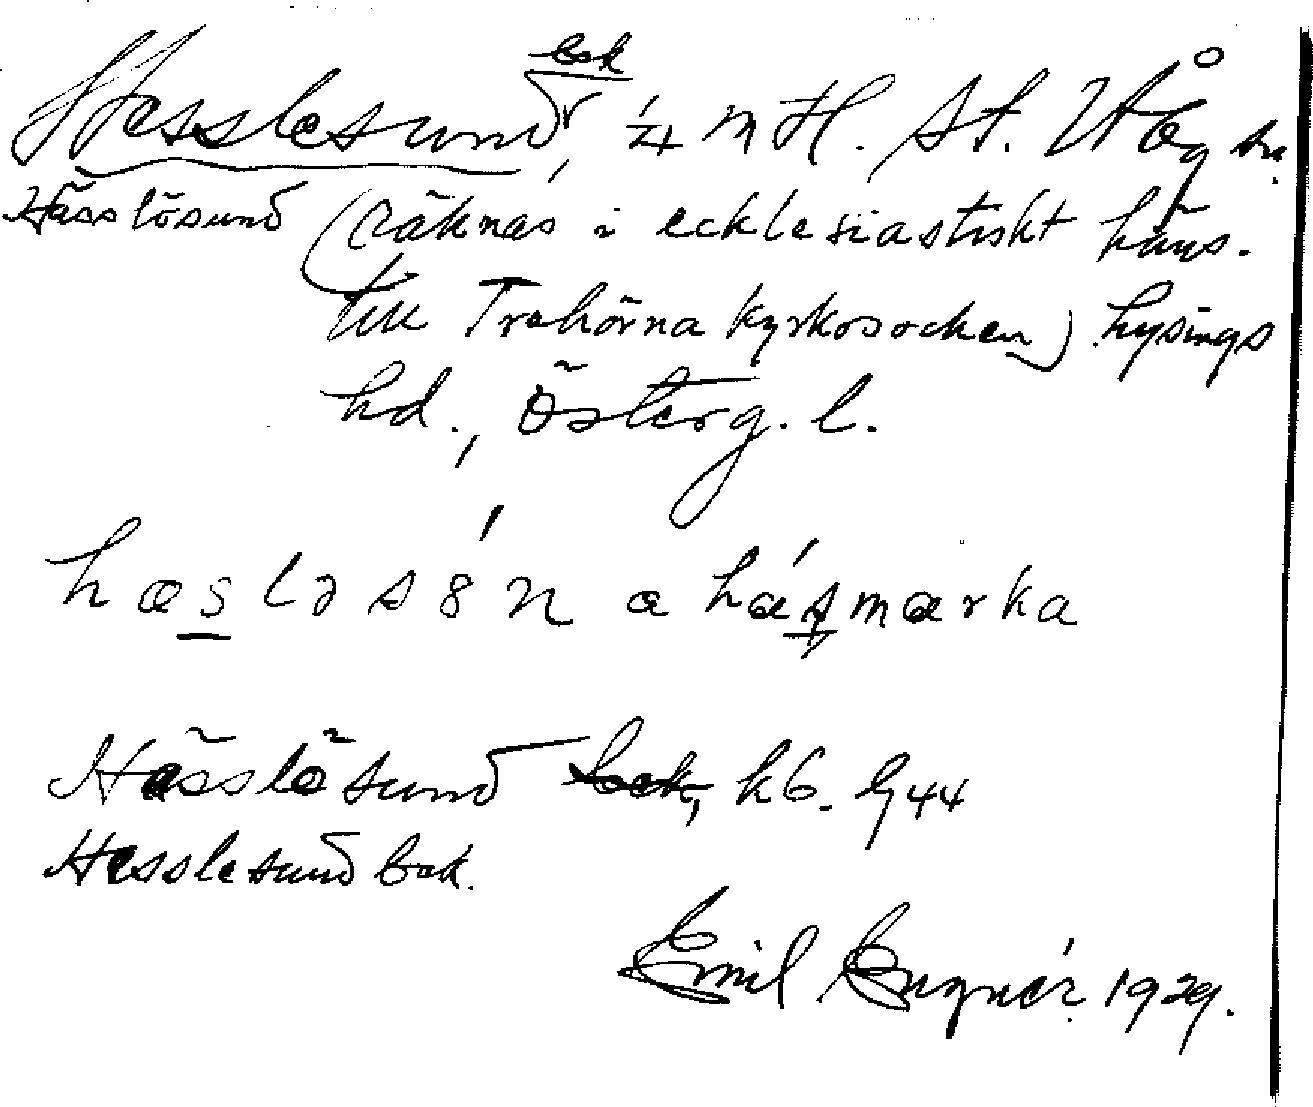 bok
Hesslesund, 1/4 m H. St. Åby sn.
Hässlösund (räknas i ecklesiastiskt häns.
till Trehörna kyrkosocken) Lysings
hd., Österg. l.
hæsləs8́n a há marka
Hässlösund bok, hb. 1944
Hesslesund bok.
Emil Engnér 1929.